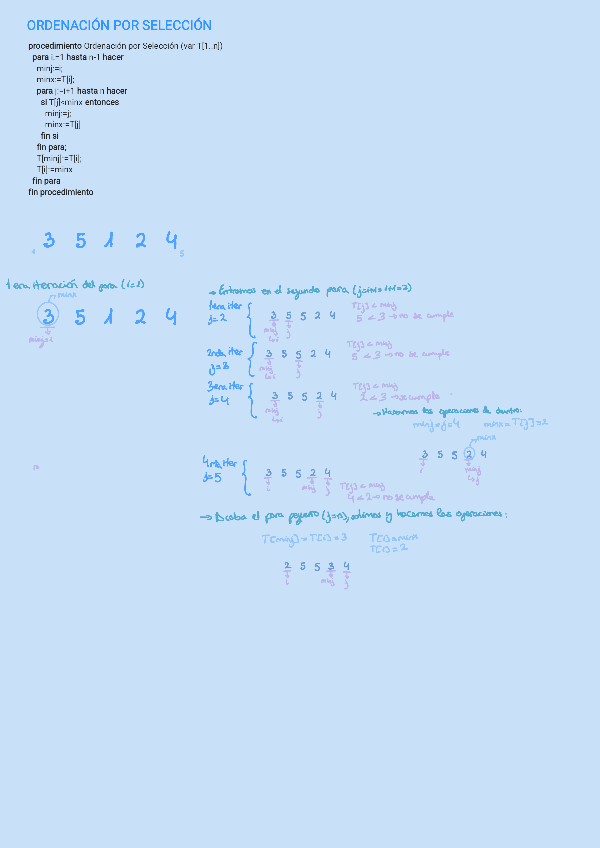 ORDENACIÓN POR SELECCIÓN
procedimiento Ordenación por Selección (var T[1..n])
para i:=1 hasta n-1 hacer
minj:=i;
minx:=T[i];
para j:=i+1 hasta n hacer
si T[j]<minx entonces
minj:=j;
minx:=T[j]
fin si
fin para;
T[minj]:=T[i];
T[i]:=minx
fin para
fin procedimiento
3 5 1 2 4
1 5
1era iteración del para (i=1)
minx
3 5 1 2 4
minj=i
→ Entramos en el segundo para (j=i+1=1+1=2)
1era iter
j=2
3 5 5 2 4
minj j
T[j] < minj
5 < 3 → no se cumple
2nda iter
j=3
3 5 5 2 4
minj j
T[j] < minj
5 < 3 → no se cumple
3era iter
j=4
3 5 5 2 4
minj j
T[j] < minj
2 < 3 → se cumple
→ Hacemos las operaciones de dentro:
minj=j=4 minx=T[j]=2
minx
3 5 5 2 4
i minj
j
4rta iter
j=5
3 5 5 2 4
i minj j
T[j] < minj
4 < 2 → no se cumple
→ Acaba el para pequeño (j=n), salimos y hacemos las operaciones:
T[minj] = T[i] = 3 T[i]=minx
T[i] = 2
2 5 5 3 4
i minj j